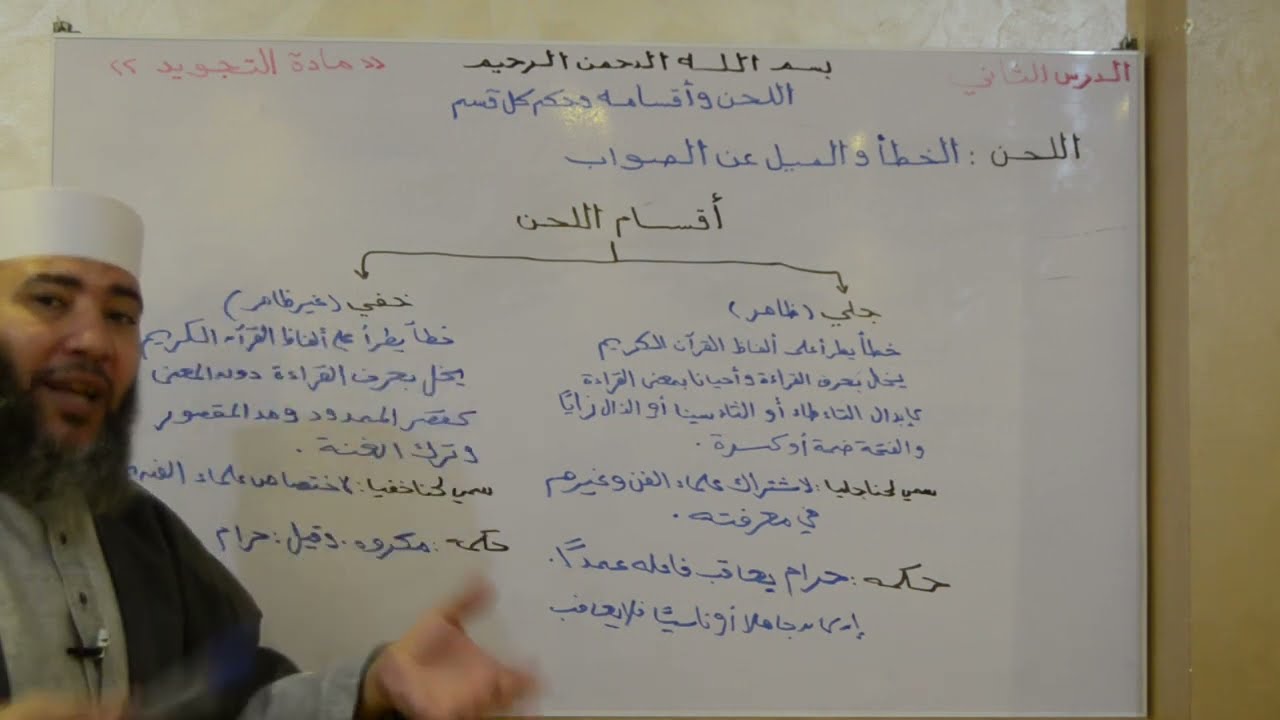 الدرس الثاني
بسم الله الرحمن الرحيم
« مادة التجويد »
اللحن وأقسامه وحكم كل قسم
اللحن : الخطأ والميل عن الصواب
أقسام اللحن
جلي (ظاهر)
خطأ يطرأ على ألفاظ القرآن الكريم
يخل بعرف القراءة وأحيانا بمعنى القراءة
كإبدال التاء طاء أو الثاء سينا أو الذال زايًا
والفتحة ضمة أو كسرة .
سمي لحنا جليا : لاشتراك علماء الفن وغيرهم
في معرفته .
حكمه : حرام يعاقب فاعله عمدًا .
إن كان جاهلا أو ناسيًا فلا يعاقب
خفي (غير ظاهر)
خطأ يطرأ على ألفاظ القرآن الكريم
يخل بعرف القراءة دون المعنى
كقصر الممدود ومد المقصور
وترك الغنة .
سمي لحنا خفيا : لاختصاص علماء الفن
حكمه : مكروه . وقيل : حرام